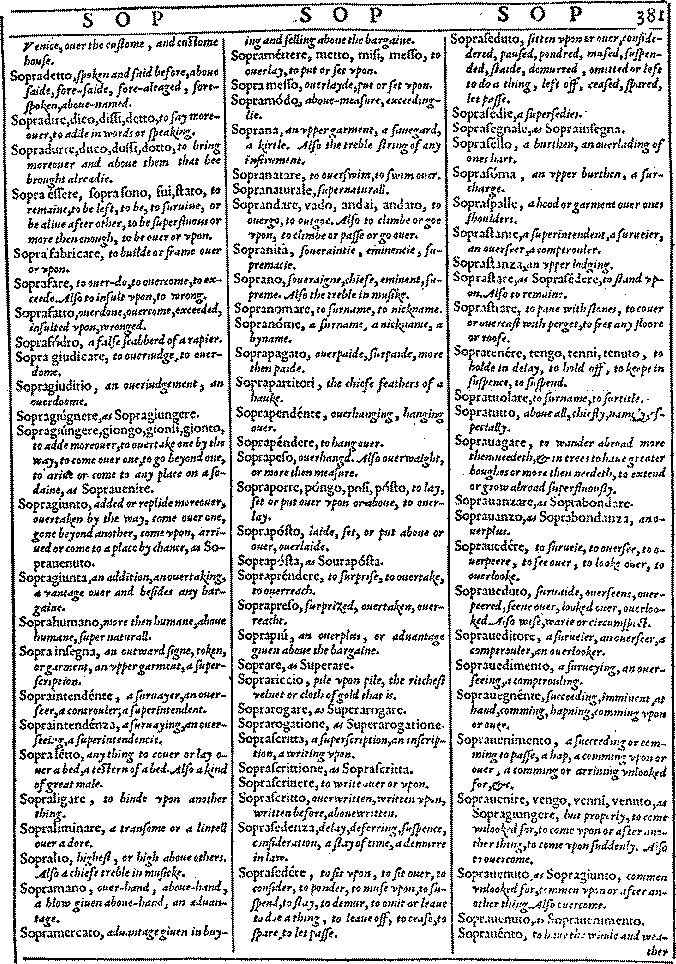 S O P
S O P
S O P
381
Venice, ouer the custome, and custome
house.
Sopradetto, spoken and said before, aboue
saide, fore-saide, fore-aleaged, fore-
spoken, aboue-named.
Sopradire, dico, dissi, detto, to say more-
ouer, to adde in words or speaking.
Sopradurre, duco, dussi, dotto, to bring
moreouer and aboue them that bee
brought alreadie.
Sopra éssere, sopra sono, fui, stato, to
remaine, to be left, to be, to suruiue, or
be aliue after other, to be superfluous or
more then enough, to be ouer or vpon.
Sopra fabricare, to builde or frame ouer
or vpon.
Soprafare, to ouer-do, to ouercome, to ex-
ceede. Also to insult vpon, to wrong.
Soprafatto, ouerdone, ouercome, exceeded,
insulted vpon, wronged.
Soprafódro, a false scabberd of a rapier.
Sopra giudicare, to oueriudge, to ouer-
dome.
Sopragiuditio, an oueriudgement, an
ouerdoome.
Sopragiúgnere, as Sopragiungere.
Sopragiúngere, giongo, gionsi, gionto,
to adde moreouer, to ouertake one by the
way, to come ouer one, to go beyond one,
to ariue or come to any place on a so-
daine, as Soprauenire.
Sopragiunto, added or replide moreouer,
ouertaken by the way, come ouer one,
gone beyond another, come vpon, arriu-
ed or come to a place by chance, as So-
prauenuto.
Sopragiunta, an addition, an ouertaking,
a vantage ouer and besides any bar-
gaine.
Soprahumano, more then humane, aboue
humane, super naturall.
Sopra insegna, an outward signe, token,
or garment, an vpper garment, a super-
scription.
Sopraintendénte, a suruayer, an ouer-
seer, a controuler, a superintendent.
Sopraintendénza, a suruaying, an ouer-
seeing, a superintendencie.
Sopralétto, any thing to couer or lay o-
uer a bed, a testern of a bed. Also a kind
of great male.
Sopraligare, to binde vpon another
thing.
Sopraliminare, a transome or a lintell
ouer a dore.
Sopralto, highest, or high aboue others.
Also a chiefe treble in musicke.
Sopramano, ouer-hand, aboue-hand,
a blow giuen aboue-hand, an aduan-
tage.
Sopramercato, aduantage giuen in buy-
ing and selling aboue the bargaine.
Sopraméttere, metto, misi, messo, to
ouerlay, to put or set vpon.
Sopra messo, ouerlayde, put or set vpon.
Sopramódo, aboue-measure, exceeding-
lie.
Soprana, an vpper garment, a sauegard,
a kirtle. Also the treble string of any
instrument.
Sopranatare, to ouerswim, to swim ouer.
Sopranaturale, supernaturall.
Soprandare, vado, andai, andato, to
ouergo, to outgoe. Also to climbe or goe
vpon, to climbe or passe or go ouer.
Sopranità, soueraintie, eminencie, su-
premacie.
Soprano, soueraigne, chiefe, eminent, su-
preme. Also the treble in musike.
Sopranomare, to surname, to nickname.
Sopranóme, a surname, a nickname, a
byname.
Soprapagato, ouerpaide, surpaide, more
then paide.
Soprapartitori, the chiefe feathers of a
hauke.
Soprapendénte, ouerhanging, hanging
ouer.
Soprapéndere, to hang ouer.
Soprapeso, ouerhangd. Also ouerwaight,
or more then measure.
Sopraporre, póngo, posi, pósto, to lay,
set or put ouer vpon or aboue, to ouer-
lay.
Soprapósto, laide, set, or put aboue or
ouer, ouerlaide.
Soprapósta, as Sourapósta.
Sopraprèndere, to surprise, to ouertake,
to ouerreach.
Sopraprèso, surprized, ouertaken, ouer-
reacht.
Soprapiú, an ouerplus, or aduantage
giuen aboue the bargaine.
Soprare, as Superare.
Soprariccio, pile vpon pile, the richest
veluet or cloth of gold that is.
Soprarogare, as Superarogare.
Soprarogatione, as Superarogatione.
Soprascritta, a superscription, an inscrip-
tion, a writing vpon.
Soprascrittione, as Soprascritta.
Soprascriuere, to write ouer or vpon.
Soprascritto, ouerwritten, written vpon,
written before, aboue written.
Soprasedenza, delay, deferring, suspence,
consideration, a stay of time, a demurre
in law.
Soprasedére, to sit vpon, to sit ouer, to
consider, to ponder, to muse vpon, to su-
spend, to stay, to demur, to omit or leaue
to doe a thing, to leaue off, to cease, to
spare, to let passe.
Sopraseduto, sitten vpon or ouer, conside-
dered, paused, pondred, mused, suspen-
ded, staide, demurred, omitted or left
to do a thing, left off, ceased, spared,
let passe.
Soprasédie, a supersedies.
Soprasegnale, as Soprainsegna.
Soprasello, a burthen, an ouerlading of
ones hart.
Soprasóma, an vpper burthen, a sur-
charge.
Sopraspalle, a hood or garment ouer ones
shoulders.
Soprastante, a superintendent, a surueier,
an ouerseer, a comptrouler.
Soprastanza, an vpper lodging.
Soprastare, as Soprasedere, to stand vp-
on. Also to remaine.
Soprastrare, to paue with stones, to couer
or ouercast with perget, to seet any floore
or roofe.
Sopratenére, tengo, tenni, tenuto, to
holde in delay, to hold off, to keepe in
suspence, to suspend.
Sopratitolare, to surname, to surtitle.
Sopratutto, aboue all, chiefly, namely, es-
pecially.
Soprauagare, to wander abroad more
them needeth, & in trees to haue greater
boughes or more then needeth, to extend
or grow abroad superfluously.
Soprauanzare, as Soprabondare.
Soprauanzo, as Soprabondanza, an o-
uerplus.
Soprauedére, to suruie, to ouersee, to o-
uerpeere, to see ouer, to looke ouer, to
ouerlooke.
Soprauéduto, suruaide, ouerseene, ouer-
peered, seene ouer, looked ouer, ouerloo-
ked. Also wise, warie or circumspect.
Soprauéditore, a surueier, an ouerseer, a
comptrouler, an ouerlooker.
Sopraueḍimento, a surueying, an ouer-
seeing, a comptrouling.
Soprauegnénte, succeeding, imminent, at
hand, comming, hapning, comming vpon
or ouer.
Soprauenimento, a succeeding or com-
ming to passe, a hap, a comming vpon or
ouer, a comming or arriuing vnlooked
for, &c.
Soprauenire, vengo, venni, venuto, as
Sopragiungere, but properly, to come
vnlooked for, to come vpon or after ano-
ther thing, to come vpon suddenly. Also
to ouercome.
Soprauenuto as Sopragiunto, commen
vnlooked for, commen vpon or after an-
other thing. Also ouercome.
Soprauenuto, to Soprauenimento.
Soprauénto, to haue the winde and wea-
ther